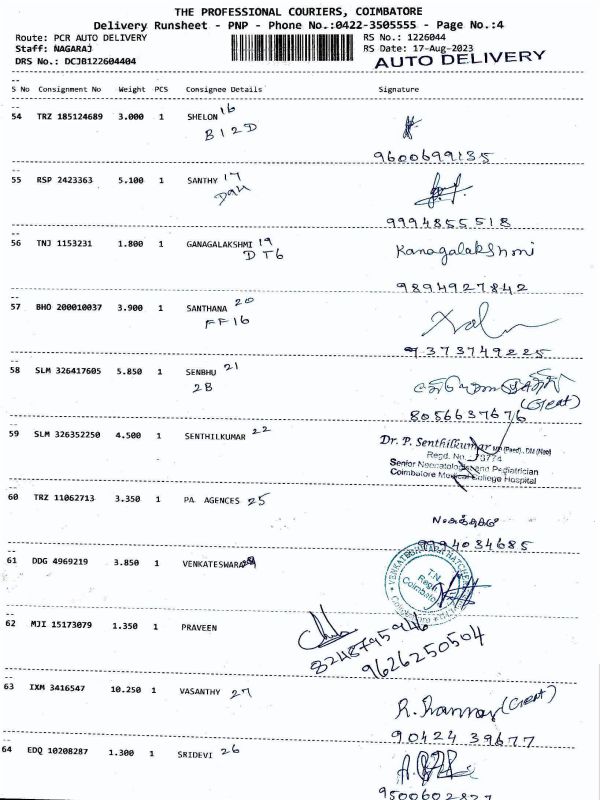 THE PROFESSIONAL COURIERS, COIMBATORE
Delivery Runsheet - PNP - Phone No.:0422-3505555 - Page No.:4
Route: PCR AUTO DELIVERY
RS No.: 1226044
Staff: NAGARAJ
RS Date: 17-Aug-2023
DRS No.: DCJB122604404
AUTO DELIVERY
S No Consignment No Weight PCS Consignee Details Signature
54 TRZ 185124689 3.000 1 SHELON 16
B12D
9600699135
55 RSP 2423363 5.100 1 SANTHY 17
9994855518
56 TNJ 1153231 1.800 1 GANAGALAKSHMI 19 Kanagalakshmi
DT6
9894927842
57 BHO 200010037 3.900 1 SANTHANA 20
FF16
9373749225
58 SLM 326417605 5.850 1 SENBHU 21
2B
(Great)
8056637676
59 SLM 326352250 4.500 1 SENTHILKUMAR 22
Dr. P. Senthilkumar MD (Paed)., DM (Neo)
Regd. No. 73774
Senior Neonatologist and Pediatrician
Coimbatore Medical College Hospital
60 TRZ 11062713 3.350 1 PA AGENCES 25
9994034685
61 DDG 4969219 3.850 1 VENKATESWARA
VENKATESHWARA HATCHERIES
T.N.
Regd
Coimbatore
62 MJI 15173079 1.350 1 PRAVEEN
8248795946
9626250504
63 IXM 3416547 10.250 1 VASANTHY 27
(Great)
90424 39677
64 EDQ 10208287 1.300 1 SRIDEVI 26